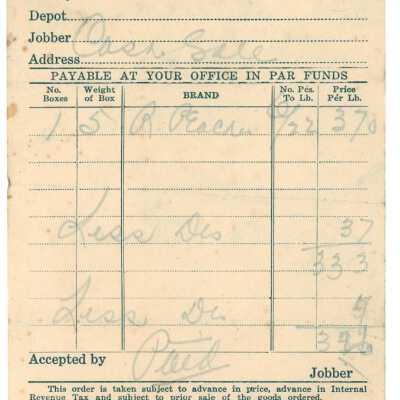 Depot
Jobber Cash Sale
Address
PAYABLE AT YOUR OFFICE IN PAR FUNDS
No. Boxes Weight of Box BRAND No. Pcs. To Lb. Price Per Lb.
1 5 R. Peaches /22 370
Less Dis 37
333
Less Dis
Paid
Accepted by Jobber
This order is taken subject to advance in price, advance in Internal
Revenue Tax and subject to prior sale of the goods ordered.